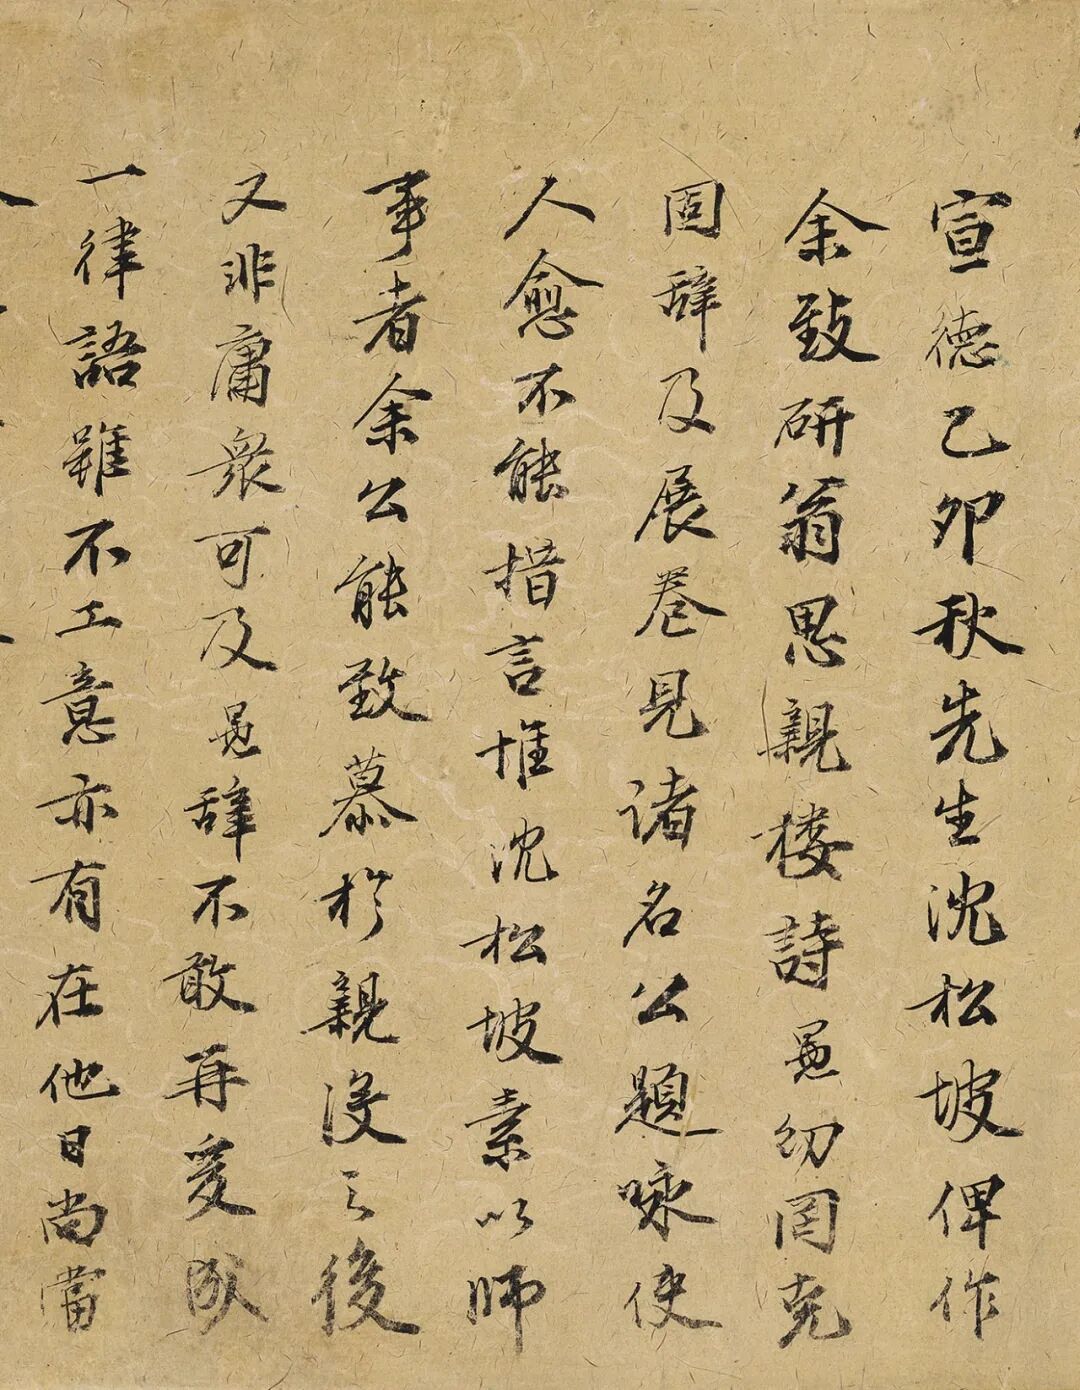 宣德乙卯秋先生沈松坡俾作
余致研翁思親樓詩愚幼罔克
固辭及展卷見諸名公題咏使
人愈不能措言惟沈松坡素以師
事者余公能致慕於親没之後
又非庸衆可及愚辭不敢再爰賦
一律語雖不工意亦有在他日尚當